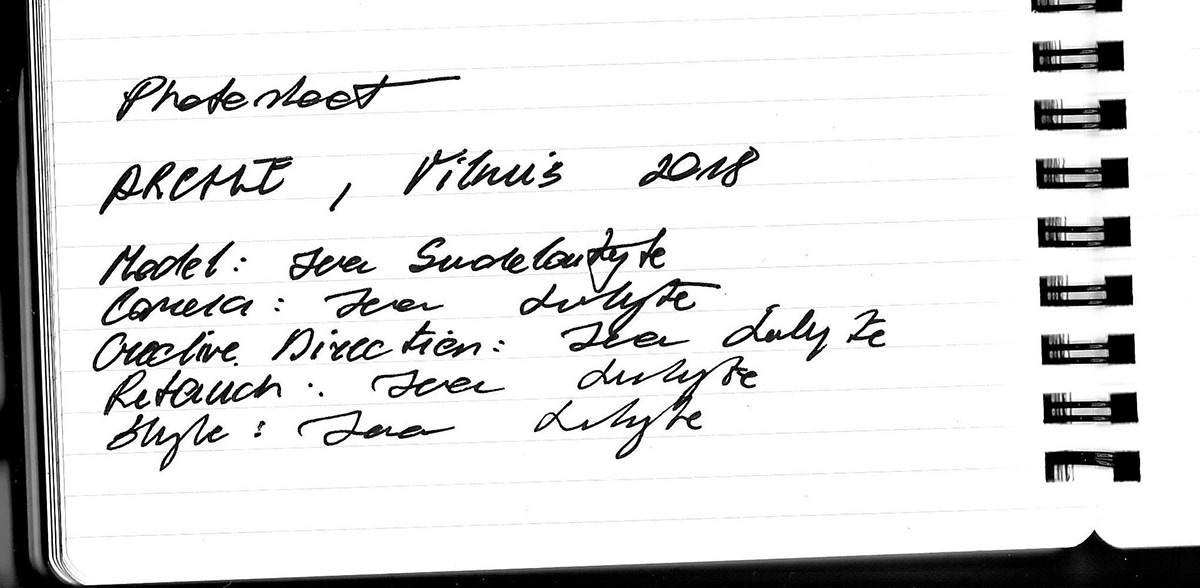 Photoshoot
, Vilnius 2018
Model: Ieva
Camera: Ieva Lulyte
Creative Direction: Ieva Lulyte
Retouch: Ieva Lulyte
Style: Ieva Lulyte